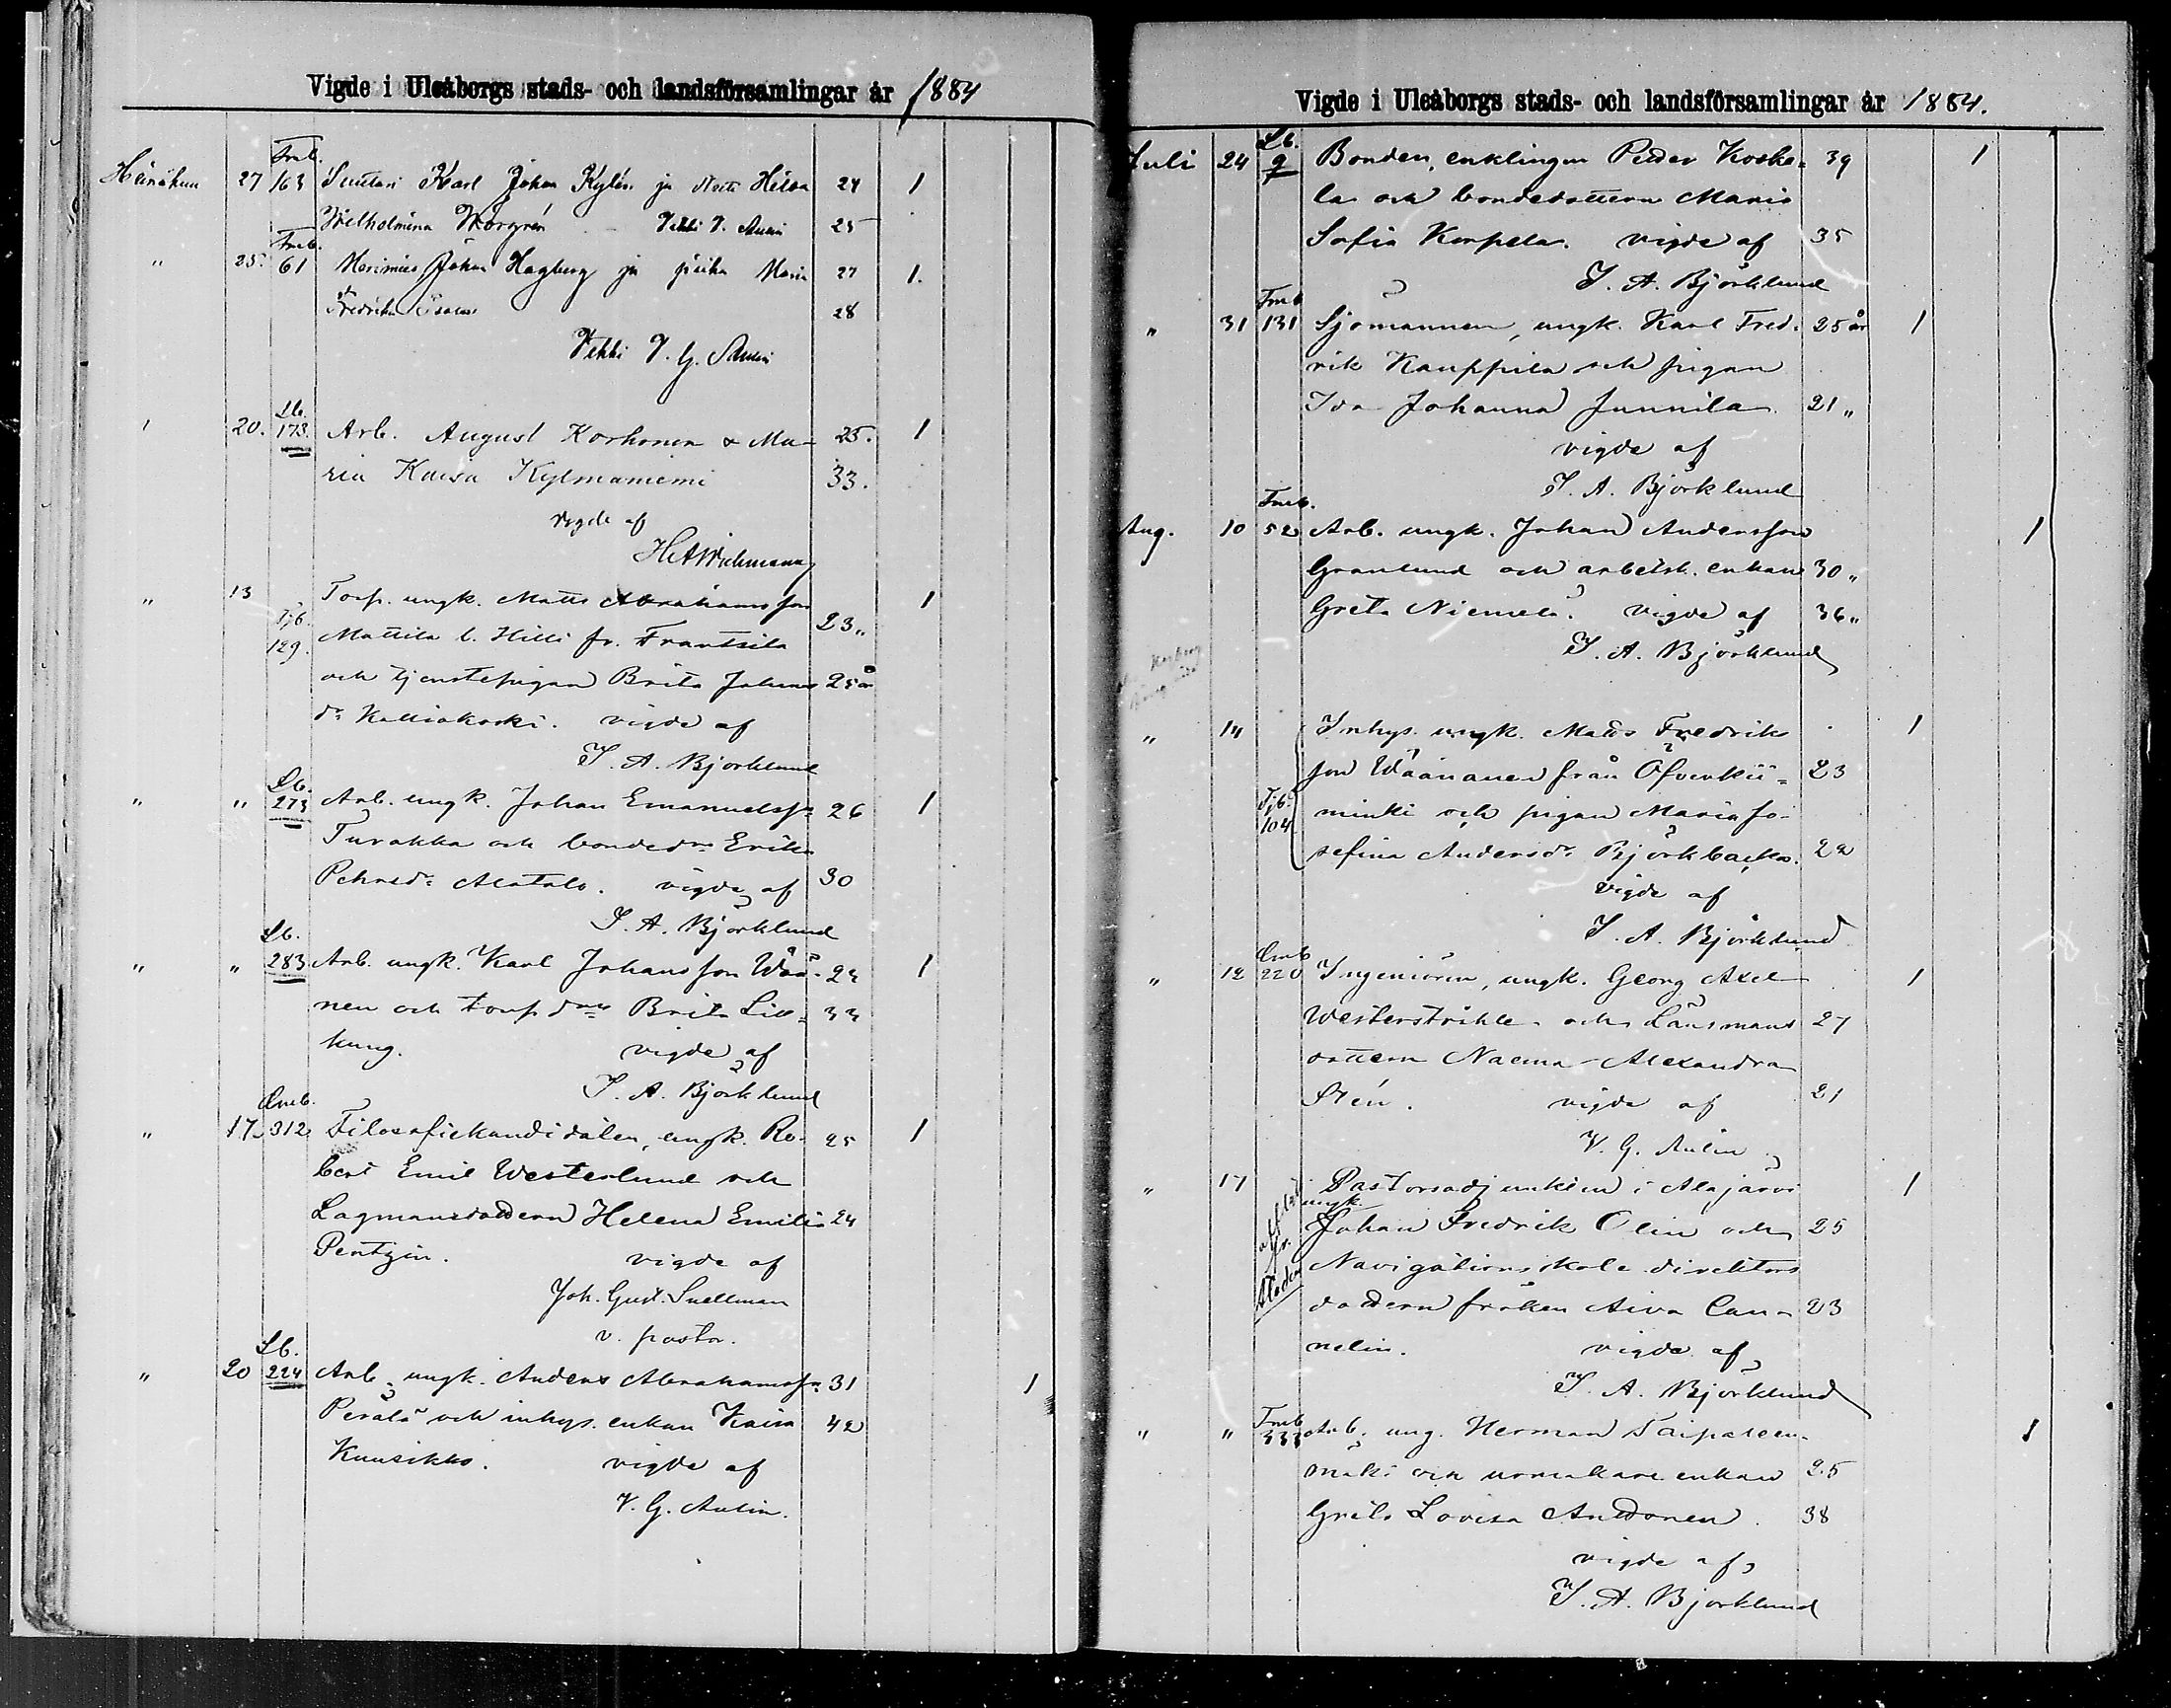 Vigde i Uleåborgs stads- och landsförsamlingar år 1884
Fmb.
Heinäkuu 27 163 Suutari Karl Johan Kylén ja Neiti Hilda 24 1
Wilhelmina Norgrén Vihki V. Aulin 25
Fmb.
" 25. 61 Merimies Johan Hagberg ja piika Maria 27 1.
Fredrika 28
Vihki V. G. Aulin
Lb.
20. 173. Arb. August Korhonen & Ma- 25. 1
ria Kaisa Kylmaniemi 33.
vigde af
H A Wichmann
" 13 Torp. ungk. Matts Abrahamsson 1
Tjb. 129. Mattila l. Hilli fr. Frantsila 23 "
och tjenstepigan Brita Johans 25 år
dr Kalliokoski. vigde af
I. A. Björklund
Lb.
" " 273 Arb. ungk. Johan Emanuelsson 26 1
Turakka och bondedrn Erika
Pehrsdr Alatalo. vigde af 30
I. A. Björklund
Lb.
" " 283. Arb. ungk. Karl Johansson Wää- 23 1
nen och torp. drn Brita Liu= 33
kung. vigde af
I. A. Björklund
Cmb.
" 17. 312 Filosofiekandidaten, ungk. Ro- 25 1
bert Emil Westerlund och
Lagmansdottern Helena Emilia 24
Pentzin. vigde af
Joh. Gust. Snellman
v. pastor.
Lb.
" 20 224 Arb. ungk. Anders Abrahamsson 31 1
Perälä och inhys. enkan Kaisa 42
Kuusikko. vigde af
V. G. Aulin.
Vigde i Uleåborgs stads- och landsförsamlingar år 1884.
Lb.
Juli 24 9 Bonden, enklingen Peder Koske= 39 1
la och bondedottern Maria
Sofia Korpela. vigde af 35
I. A. Björklund
Fmb
" 31 131 Sjömannen, ungk. Karl Fred- 25 år 1
rik Kauppila och pigan
Ida Johanna Junnila 21 "
vigde af
I. A. Björklund
Fmb.
Aug. 10 52 Arb. ungk. Johan Andersson 1
Granlund och arbetsk. enkan 30 "
Greta Niemelä. vigde af 36 "
I. A. Björklund
" 14 Inhys. ungk. Matts Fredriks 1
son Wäänänen från Öfverkii= 23
Tjb. 104 minki och pigan Maria Jo-
sefina Andersdr Björkbacka. 22
vigde af
I. A. Björklund
Cmb
" 12 220 Ingeniören, ungk. Georg Axel 1
Westerstråhle och Länsmans 27
dottern Naema Alexandra
Stén. vigde af 21
V. G. Aulin
" 17 Pastorsadjunkten i Alajärvi 1
ungk.
Johan Fredrik Olin och 25
Navigationsskole direktors
dottern fröken Aina Can- 23
nelin. vigde af
I. A. Björklund
Fmb
" " 333 Arb. ung. Herman Taipaleen- 1
mäki och urmakare enkan 25
Greta Lovisa Anttonen. 38
vigde af
I. A. Björklund